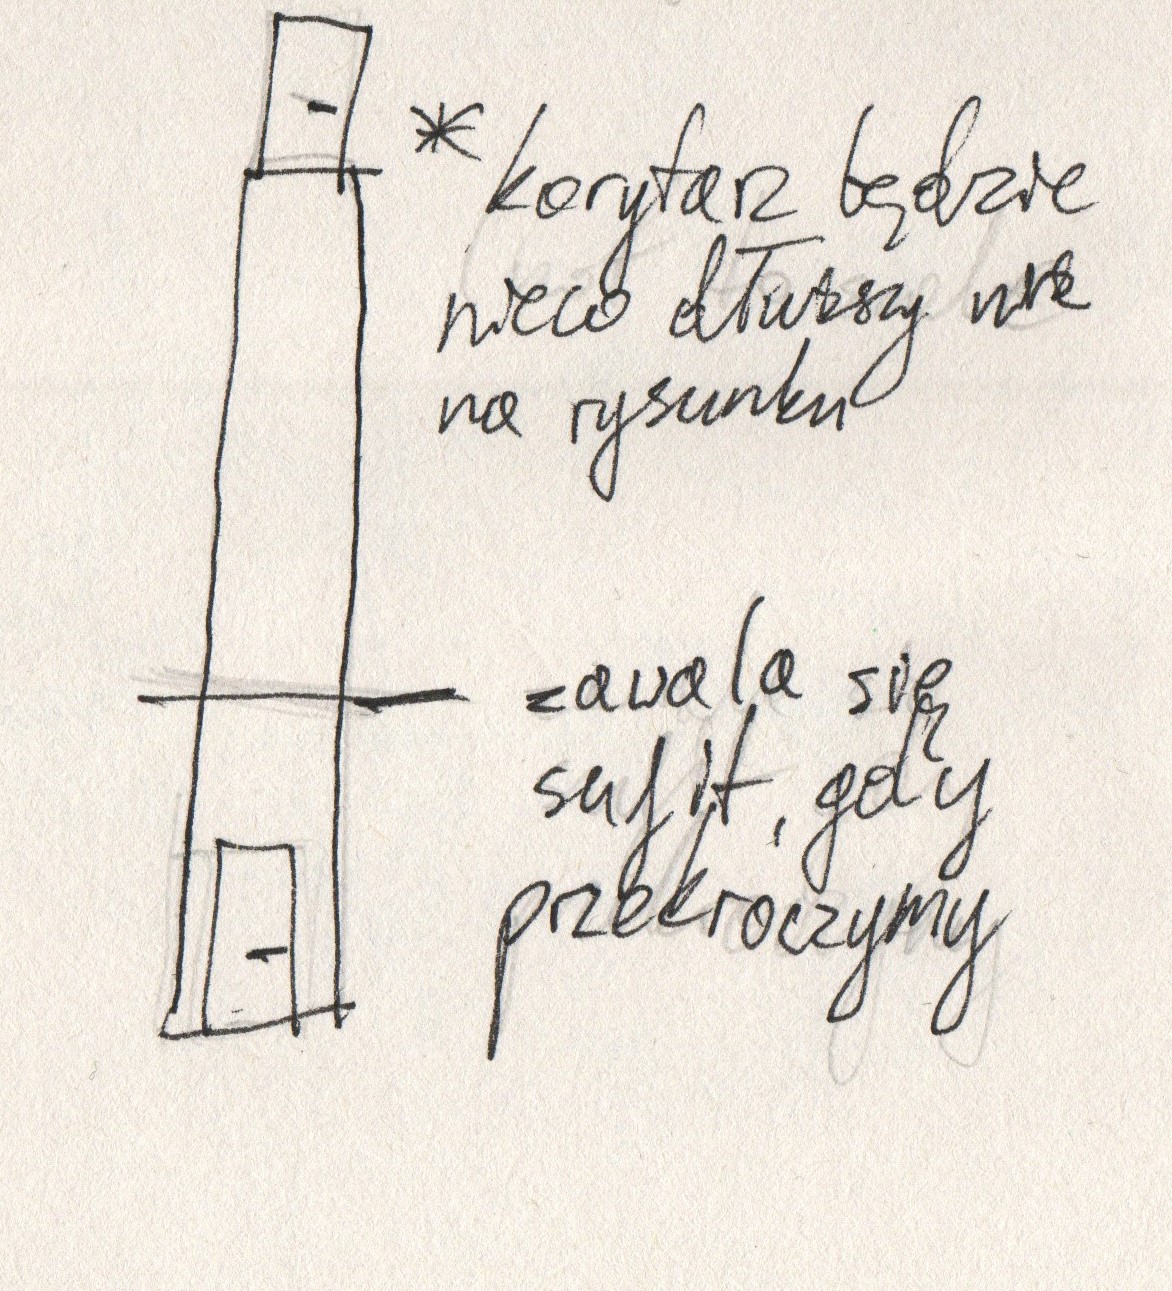 * korytarz będzie
nieco dłuższy niż
na rysunku
zawala się
sufit, gdy
przekroczymy